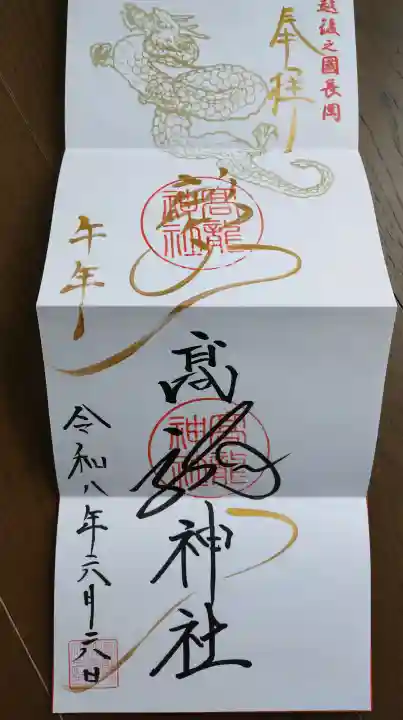 越後之國長岡
奉拝
龍
高龍神社
午年
高龍神社
高龍神社
令和八年六月六日